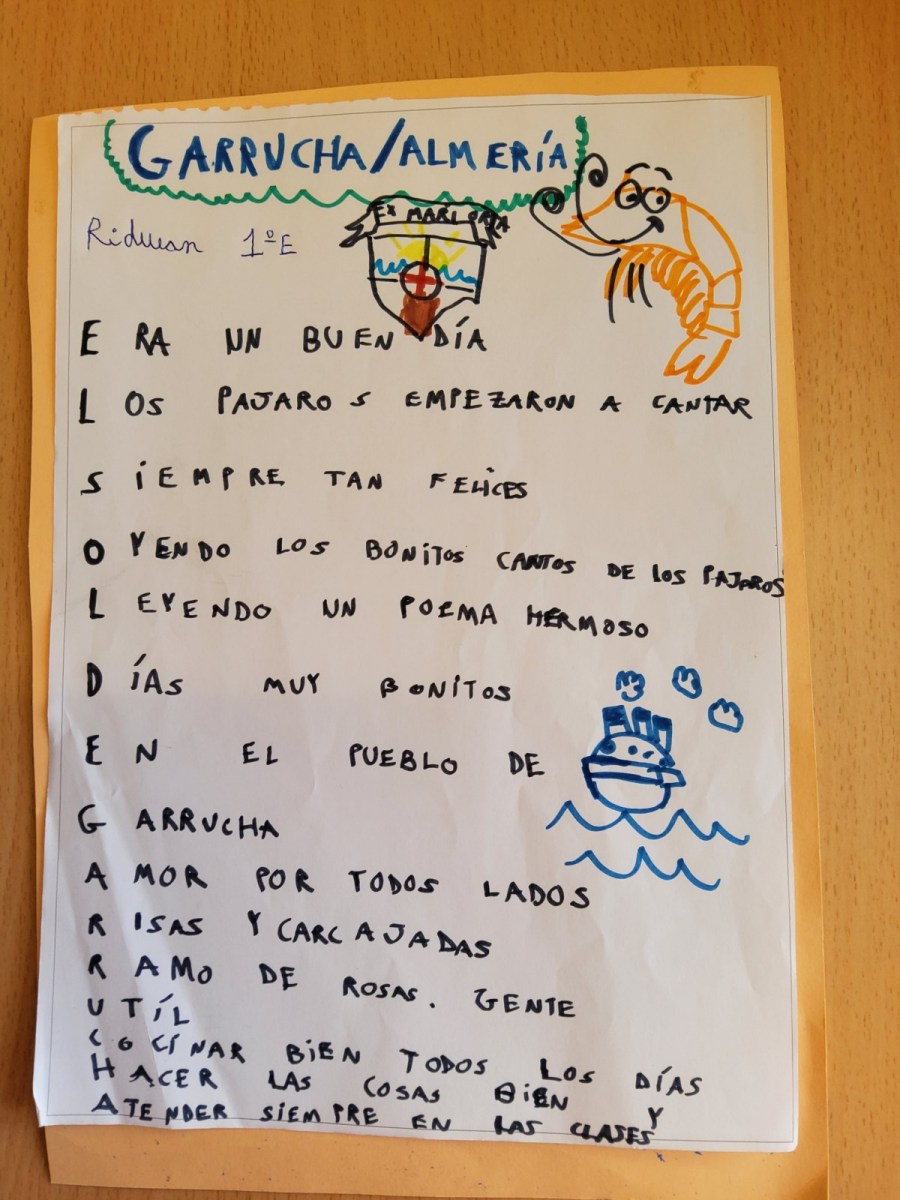 GARRUCHA/ALMERÍA
EX MARI ORTA
Riduan 1º E
ERA UN BUEN DÍA
LOS PAJAROS EMPEZARON A CANTAR
SIEMPRE TAN FELICES
OYENDO LOS BONITOS CANTOS DE LOS PAJAROS
LEYENDO UN POEMA HERMOSO
DÍAS MUY BONITOS
EN EL PUEBLO DE
GARRUCHA
AMOR POR TODOS LADOS
RISAS Y CARCAJADAS
RAMO DE ROSAS. GENTE
UTÍL
COCINAR BIEN TODOS LOS DÍAS
HACER LAS COSAS BIEN Y
ATENDER SIEMPRE EN LAS CLASES